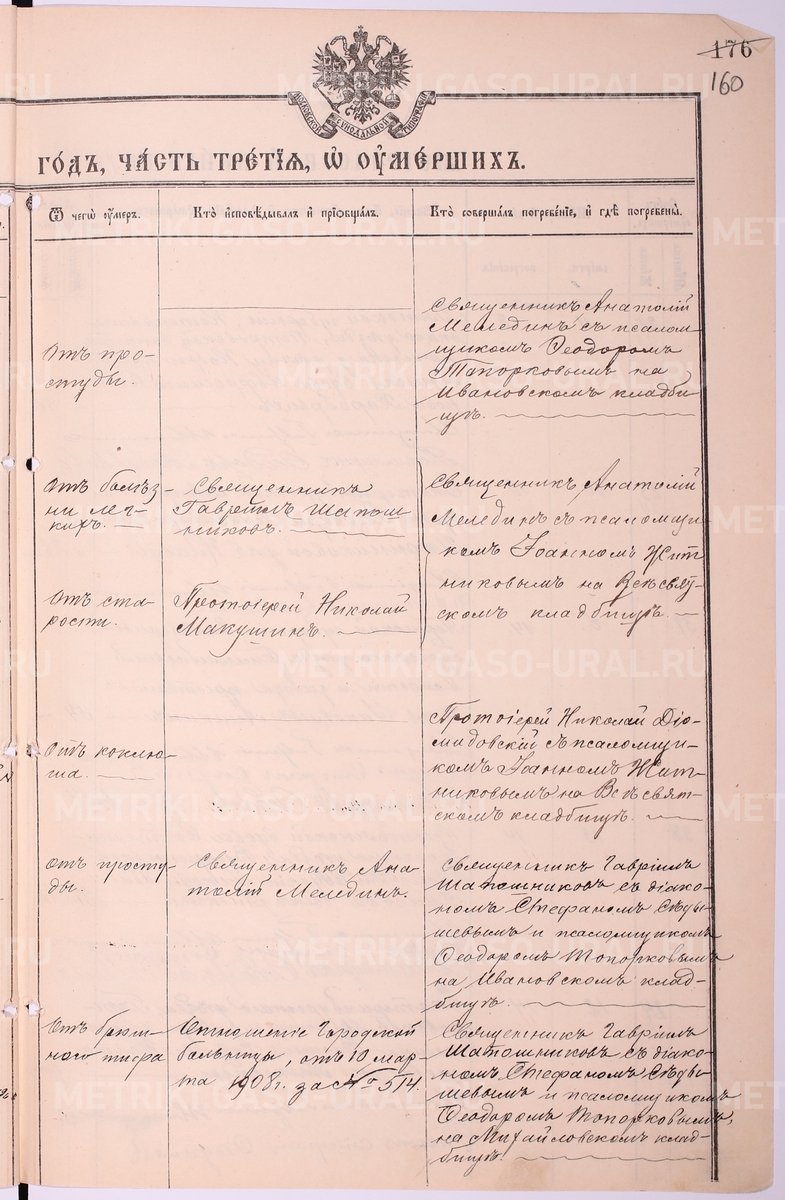 176
160
МОСКОВСКОЙ СѴНОДАЛЬНОЙ ТИПОГРАФІИ
ГО́ДЪ, ЧА́СТЬ ТРЕ́ТІѦ, Ѡ ОУ҆МЕ́РШИХЪ.
Ѿ чегѡ̀ оу҆́меръ.
Кто̀ и҆сповѣ́дывалъ и҆ прїѡбща́лъ.
Кто̀ соверша́лъ погребе́нїе, и҆ гдѣ̀ погребены̀.
Отъ про-
студы.
Священникъ Анатолій
Мелединъ съ псалом-
щикомъ Ѳеодоромъ
Топорковымъ на
Ивановскомъ кладби-
щѣ.
Отъ болѣз-
ни лег-
кихъ.
Священникъ
Гавріилъ Шапош-
никовъ.
Священникъ Анатолій
Мелединъ съ псаломщи-
комъ Іоанномъ Жит-
никовымъ на Всѣсвят-
скомъ кладбищѣ.
Отъ ста-
рости.
Протоіерей Николай
Макушинъ.
Отъ коклю-
ша.
Протоіерей Николай Діо-
мидовскій съ псаломщи-
комъ Іоанномъ Жит-
никовымъ на Всѣсвят-
скомъ кладбищѣ.
Отъ просту-
ды.
Священникъ Ана-
толій Мелединъ.
Священникъ Гавріилъ
Шапошниковъ съ діако-
номъ Стефаномъ Сѣды-
шевымъ и псаломщикомъ
Ѳеодоромъ Топорковымъ
на Ивановскомъ клад-
бищѣ.
Отъ брюш-
ного тифа
Отношеніе Городской
больницы, отъ 10 мар-
та 1908 г. за № 514.
Священникъ Гавріилъ
Шапошниковъ съ діако-
номъ Стефаномъ Сѣды-
шевымъ и псаломщикомъ
Ѳеодоромъ Топорковымъ,
на Михайловскомъ клад-
бищѣ.
METRIKI.GASO-URAL.RU